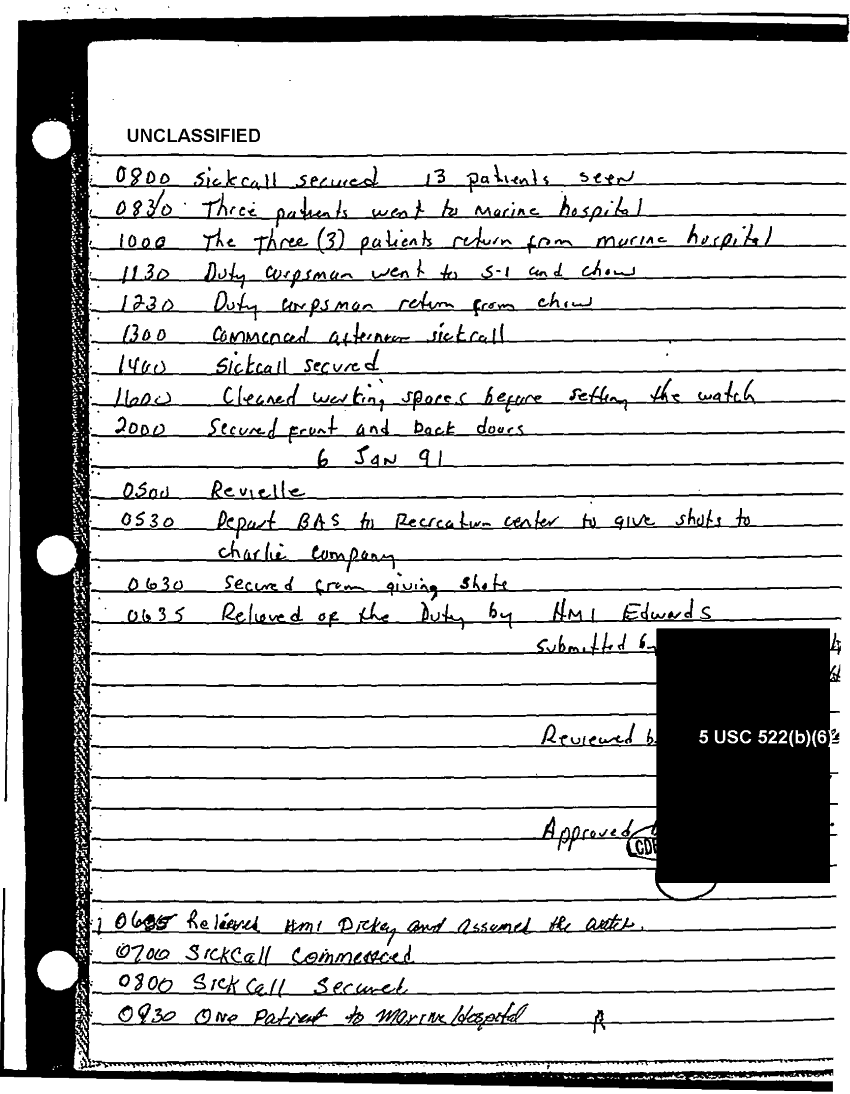 UNCLASSIFIED
0800 Sickcall secured 13 patients seen
0830 Three patients went to Marine hospital
1000 The Three (3) patients return from marine hospital
1130 Duty corpsman went to S-1 and chow
1230 Duty corpsman return from chow
1300 Commenced afternoon sickcall
1400 Sickcall secured
1600 Cleaned working spaces before setting the watch
2000 Secured front and back doors
6 JAN 91
0500 Revielle
0530 Depart BAS to Recreation center to give shots to
charlie company
0630 secured from giving shots
0635 Relieved of the Duty by HM1 Edwards
Submitted b
Reviewed b
5 USC 522(b)(6)
Approved
LCDR
Relieved HM1 Dickey and assumed the watch.
0700 SickCall Commenced
0800 SickCall Secured
0930 One Patient to Marine Hospital